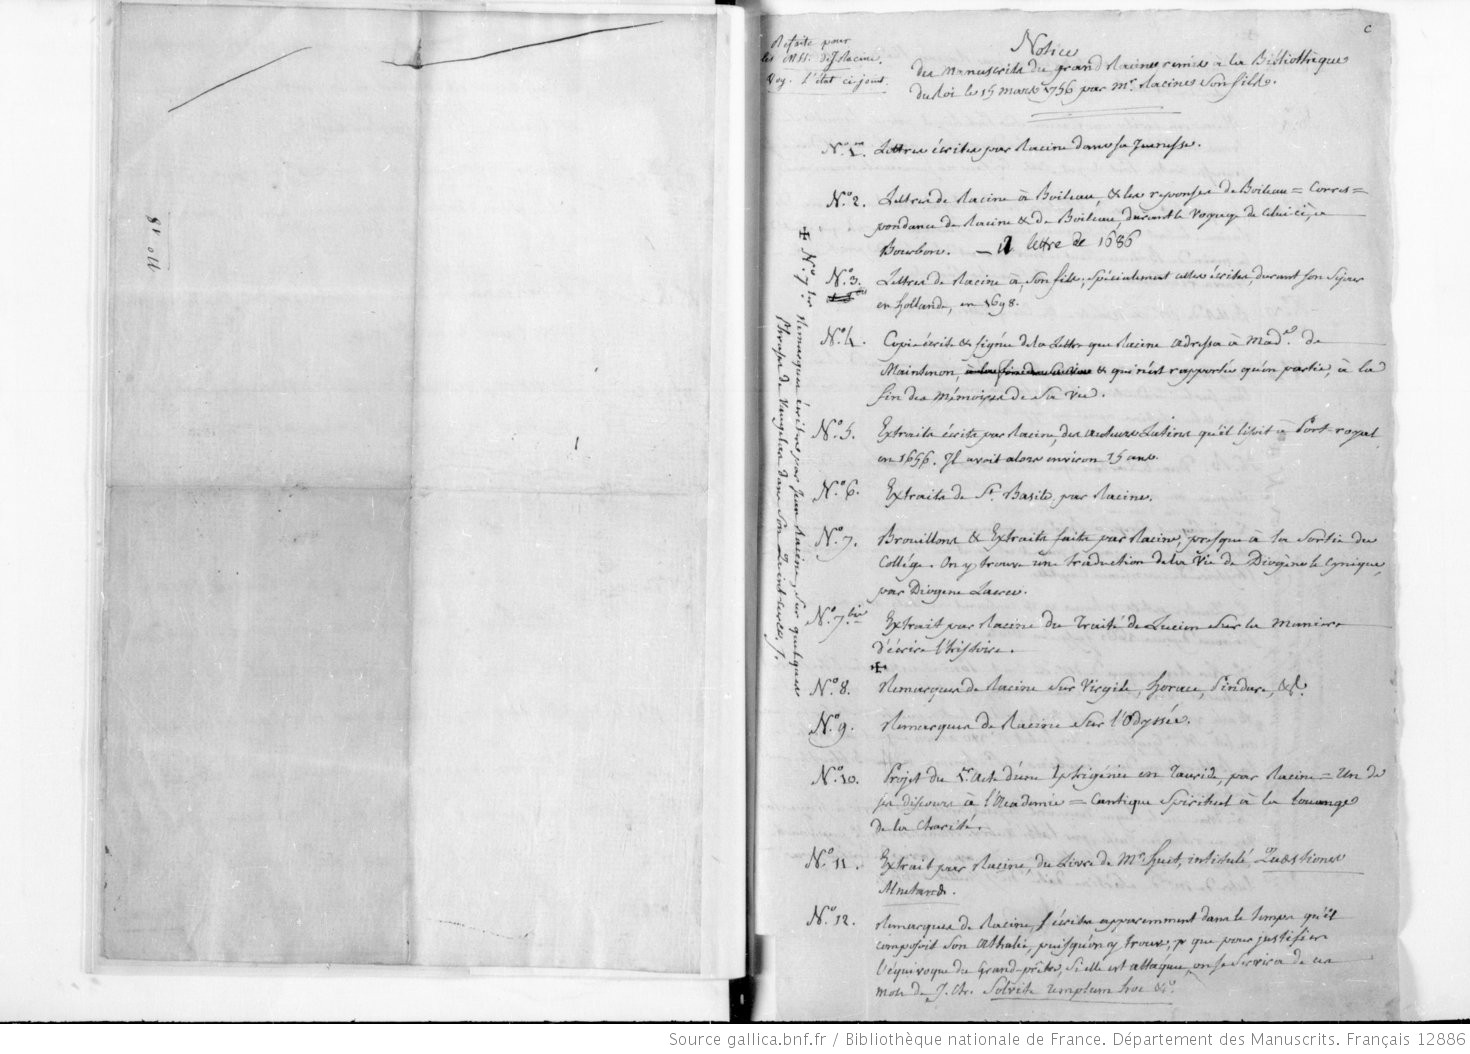 Refaite pour
les MSS. de J. Racine.
Voy. l'état ci-joint.
c
Notice
des Manuscrits du grand Racine remis à la Bibliothèque
du Roi le 15 mars 1756 par Mr. Racine son fils.
N.º 1.er Lettres écrites par Racine dans sa Jeunesse.
N.º 2. Lettres de Racine à Boileau, & les reponses de Boileau = Corres=
pondance de Racine & de Boileau, durant le voyage de celui ci, a
Bourbon. — lettre de 1686
N.º 3. Lettres de Racine à son fils, spécialement celles écrites, durant son séjour
en hollande, en 1698.
N.º 4. Copie écrite & signée de la Lettre que Racine adressa à Mad.e de
Maintenon, à la fin de sa vie & qui n'est rapportée qu'en partie, à la
fin des Mémoires de sa vie.
N.º 5. Extraits écrits par Racine, des auteurs Latins qu'il lisoit à Port-royal,
en 1656. Il avoit alors environ 15 ans.
N.º 6. Extraits de St. Basile, par Racine.
N.º 7. Brouillons & Extraits faits par Racine, presque à la sortie du
Collége. On y trouve une traduction de la Vie de Diogène le Cynique,
par Diogene Laerce.
N.º 7.bis Extrait par Racine du Traité de Lucien sur la maniere
d'écrire l'histoire.
✠
✠ N.º 7.ter Remarques écrites par Jean Racine, sur quelques
Phrases de Vaugelas dans son Quint-Curce, /.
N.º 8. Remarques de Racine sur Virgile, horace, Pindare, &c.
N.º 9. Remarques de Racine sur l'Odyssée.
N.º 10. Projet du 1.er Acte d'une Iphigénie en Tauride, par Racine = Un de
ses discours à l'Academie = Cantique spirituel à la louange
de la Charité.
N.º 11. Extrait par Racine, du Livre de Mr. huet, intitulé, Quæstiones
Alnetanæ.
N.º 12. Remarques de Racine, écrites apparemment dans le temps qu'il
composoit son Athalie, puisqu'on y trouve, que pour justifier
l'équivoque du Grand-prêtre, si elle est attaquée, on se servira de ces
mots de J. Ch. Solvite templum hoc &c.
Source gallica.bnf.fr / Bibliothèque nationale de France. Département des Manuscrits. Français 12886